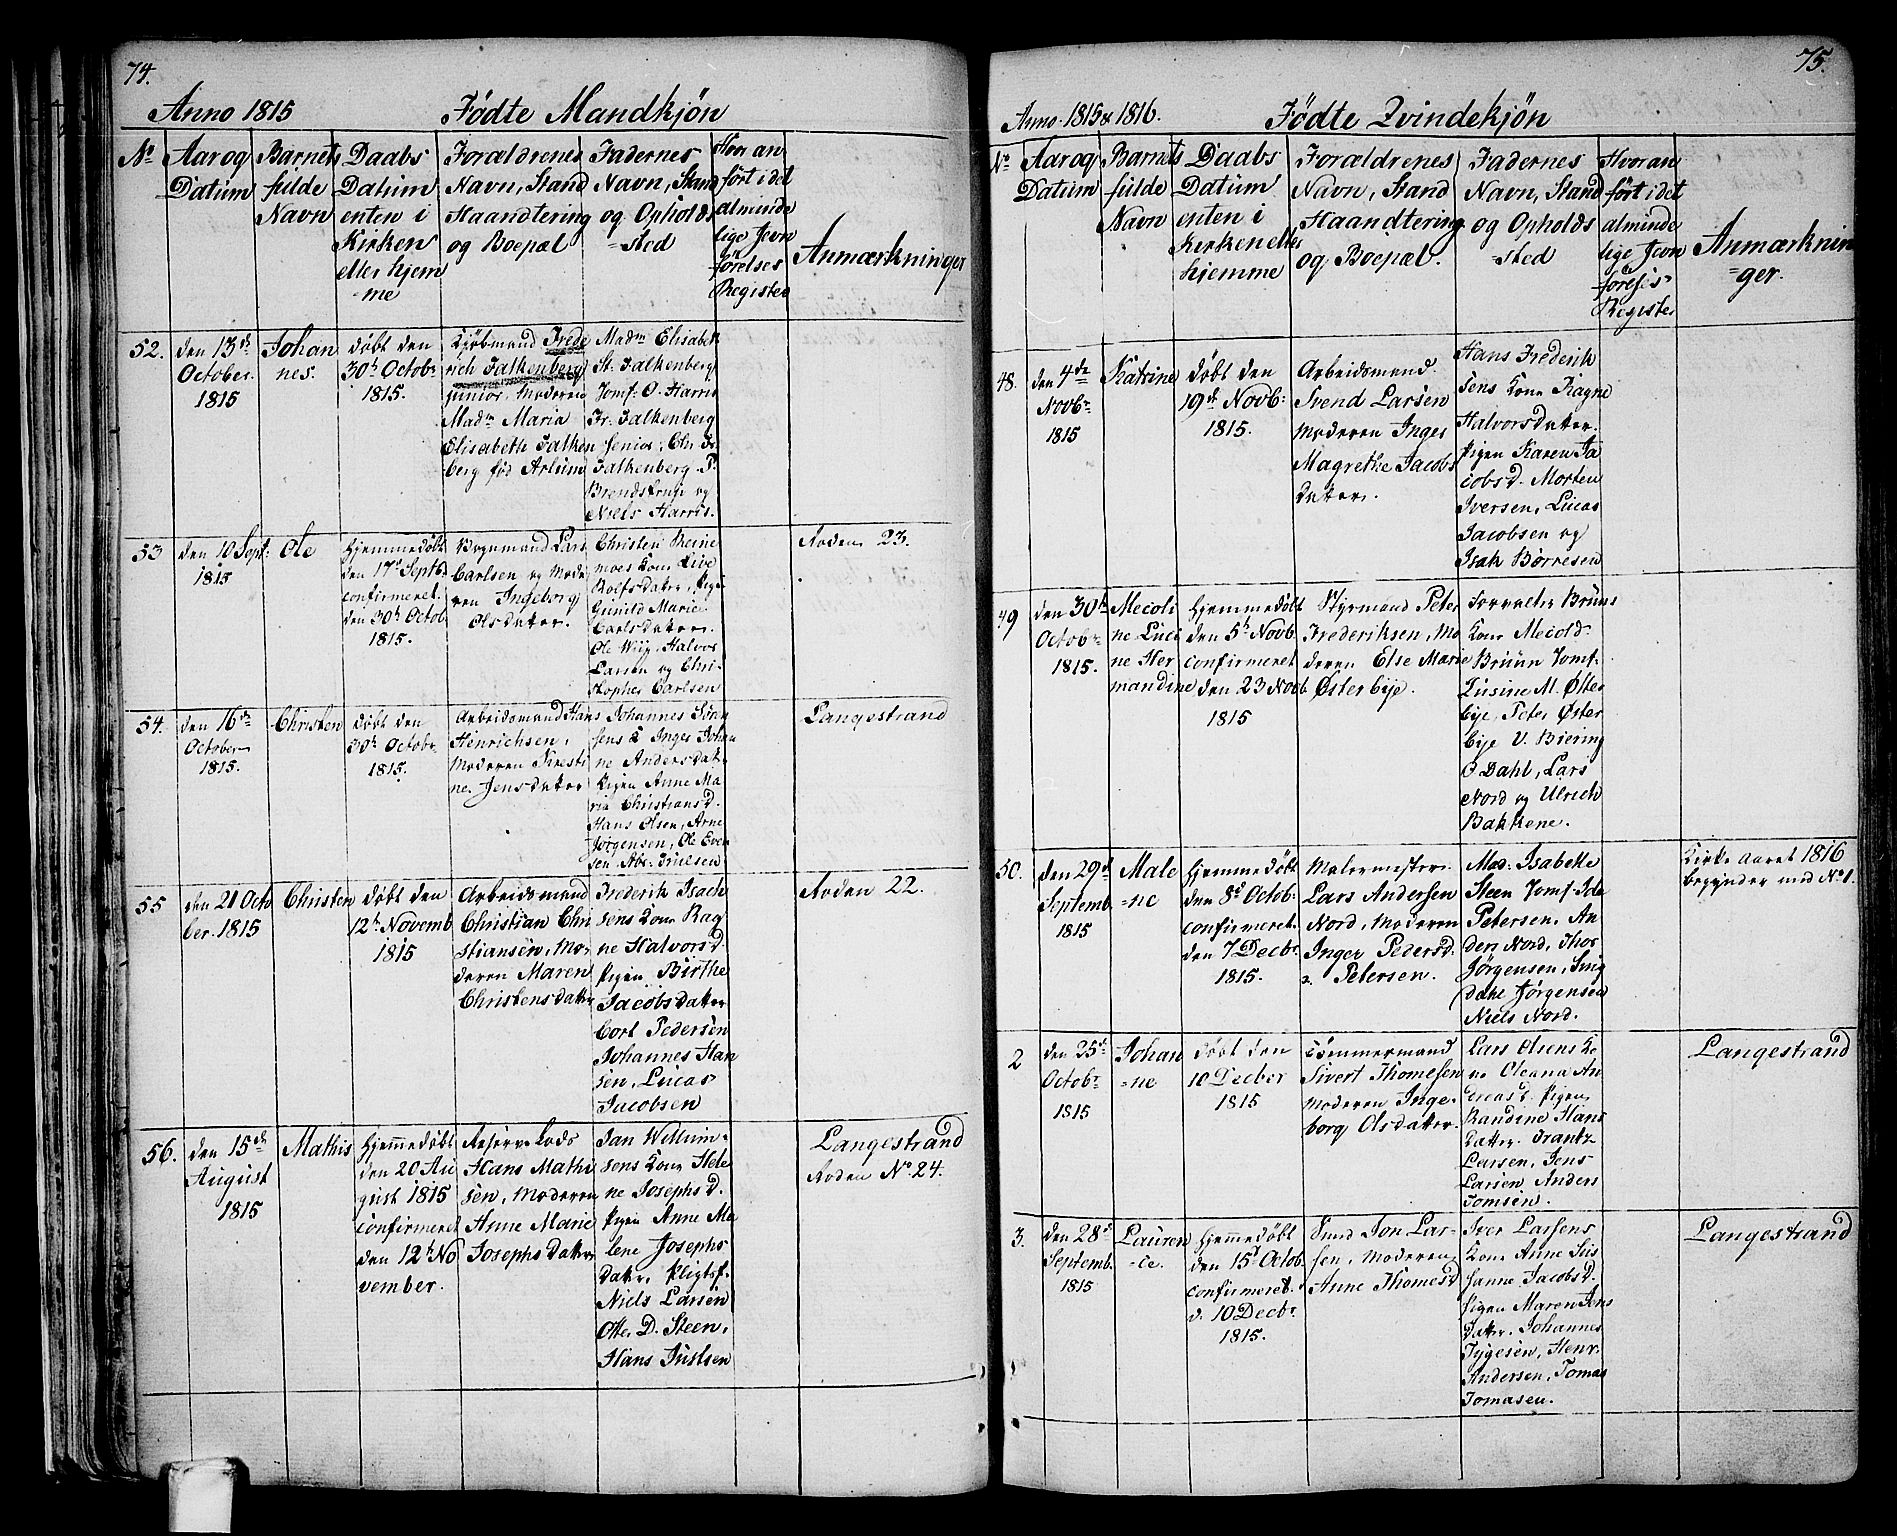 74.
Anno 1815 Fødte Mandkjøn
No
Aar og
Datum
Barnets
fulde
Navn
Daabs
Datum
enten i
Kirken
eller hjem
=me
Forældrenes
Navn, Stand
Haandtering
og Boepæl
Fadernes
Navn, Stand
og Opholds
=sted
Hvor an
ført i det
alminde
lige Jevn
førelses
Register
Anmærkninger
52.
den 13de
October.
1815
Johan
nes.
døbt den
30te Octobr
1815.
Kjøbmand Frede
rich Falkenberg
junior, Moderen
Madm Maria
Elisabeth Falken
berg fød Arlum
Madm Elisabet
St. Falkenberg
Jomf: O. Harris
Fr. Falkenberg
senior, Chr Fr
Falkenberg. P.
Brendstrup og
Niels Harris.
53
den 10 Sept:
1815
Ole
Hjemmedøbt
den 17de Septb.
confirmeret
den 30te Octob
1815.
Bøgmand Lars
Carlsen og Mode
ren Ingeborg
Olsdatter.
Christen Reine
moes Kone Live
Rolfsdatter, Pige
Gunild Marie
Carlsdatter.
Ole Wiig, Halvor
Larsen og Chri-
stopher Carlsen
Roden 23.
54.
den 16de
October
1815.
Christen
døbt den
30te Octobr
1815.
Arbeidsmand Hans
Henrichsen,
Moderen Kiresti
ne Jensdatter
Johannes Søren
sens K Inger Johan
ne Andersdat.
Pigen Anne Ma
rie Christiansd.
Hans Olsen, Arne
Jørgensen, Ole Even
sen, Abr. Juelsen
Langestrand
55
den 21 Octo
ber. 1815
Christen
døbt den
12te Novemb
1815
Arbeidsmand
Christian Chri
stiansen, Mo-
deren Maren
Christensdatter
Frederik Isach
sens Kone Rag
ne Halvorsd.
Pigen Birthe
Jacobsdatter
Cort Pedersen
Johannes Han
sen, Lucas
Jacobsen
Roden 22.
56.
den 15de
August
1815
Mathis
Hjemmedøbt
den 20 Au
gust 1815
confirmeret
den 12te No
vember.
Reserve Lods
Hans Mathi
sen, Moderen
Anne Marie
Josephsdatter
Jan Willum-
sens Kone Hele
ne Josephsd.
Pigen Anne Ma
lene Josephs
datter Pligtsf.
Niels Larsen
Otte D. Steen,
Hans Justsen
Langestrand
Roden No 24.
75.
Anno 1815 & 1816. Fødte Qvindekjøn
No
Aar og
Datum
Barnets
fulde
Navn
Daabs
Datum
enten i
Kirken eller
hjemme
Forældrenes
Navn, Stand
Haandtering
og Boepæl.
Fadernes
Navn, Stand
og Opholds
=sted
Hvor an
ført i det
alminde
lige Jevn
førelses
Register
Anmærknin
=ger.
48.
den 4de
Novbr
1815
Katrine
døbt den
19de Novb:
1815.
Arbeidsmand
Svend Larsen
Moderen Inger
Magrethe Jacobs
datter.
Hans Frederik
sens Kone Ragne
Halvorsdatter.
Pigen Karen Ja
cobsd. Morten
Iversen, Lucas
Jacobsen og
Isak Børresen
49
den 30te
Octobr
1815.
Mecoli
ne Luci
ne Her
mandine
Hjemmedøbt
den 5te Novb.
confirmeret
den 23 Novb
1815
Styrmand Peter
Frederiksen, Mo
deren Else Marie
Østerbye.
Forvalter Bruns
Kone Mecold.
Bruun Jomf.
Lusine M. Øster
bye, Peter Øster
bye V. Biering
O Dahl, Lars
Nord og Ulrich
Bakkene.
50.
den 29de
Septemb.
1815
Male
=ne
Hjemmedøbt
den 8de Octob:
confirmeret
den 7 Decbr
1815.
Malermester
Lars Andersen
Nord, Moderen
Inger Pedersd
Petersen.
Mad. Isabelle
Steen Jomf. Ida
Petersen, An
ders Nord, Thor
Jørgensen, Sing
dahl Jørgensen
Niels Nord.
Kirke Aaret 1816
begynder med No 1.
2
den 25de
Octobr
1815
Johan
=ne
døbt den
10 Decber
1815
Tømmermand
Sivert Thomesen
Moderen Inge-
borg Olsdatter.
Lars Olsens Ko
ne Oleana An
dreasd. Pigen
Randine Hans
datter. Frantz
Larsen, Jens
Larsen Anders
Tomsen.
Langestrand
3.
den 28de
Septemb.
1815
Lauren
=ce.
Hjemmedøbt
den 15de Octob.
confirmeret.
d. 10 Decbr
1815.
Smed Jon Lar-
sen, Moderen
Anne Thomesd
Iver Larsens
Kone Anne Sus
sanne Jacobsd.
Pigen Maren Jens
datter. Johannes
Tygesen, Henr.
Andersen, Tomas
Tomasen.
Langestrand